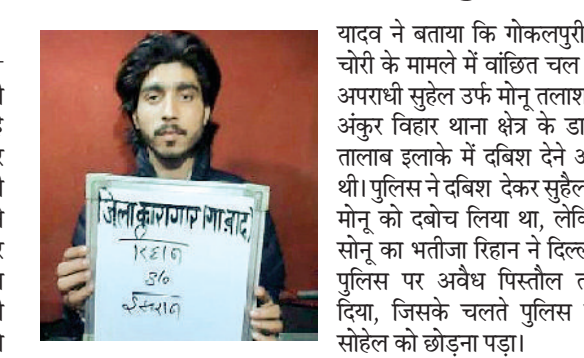 जिला कारागार गा.बाद
रिहान
S/o
ईसरान
यादव ने बताया कि गोकलपुरी
चोरी के मामले में वांछित चल
अपराधी सुहेल उर्फ मोनू तलाश
अंकुर विहार थाना क्षेत्र के डा
तालाब इलाके में दबिश देने अ
थी। पुलिस ने दबिश देकर सुहैल
मोनू को दबोच लिया था, लेकि
सोनू का भतीजा रिहान ने दिल्ल
पुलिस पर अवैध पिस्तौल त
दिया, जिसके चलते पुलिस
सोहेल को छोड़ना पड़ा।